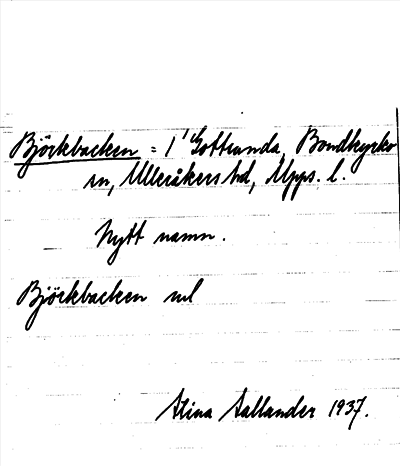 Björkbacken = 1' Gottsunda, Bondkyrko
sn, Ulleråkers hd, Upps. l.
Nytt namn.
Björkbacken ul
Stina Sallander 1937.